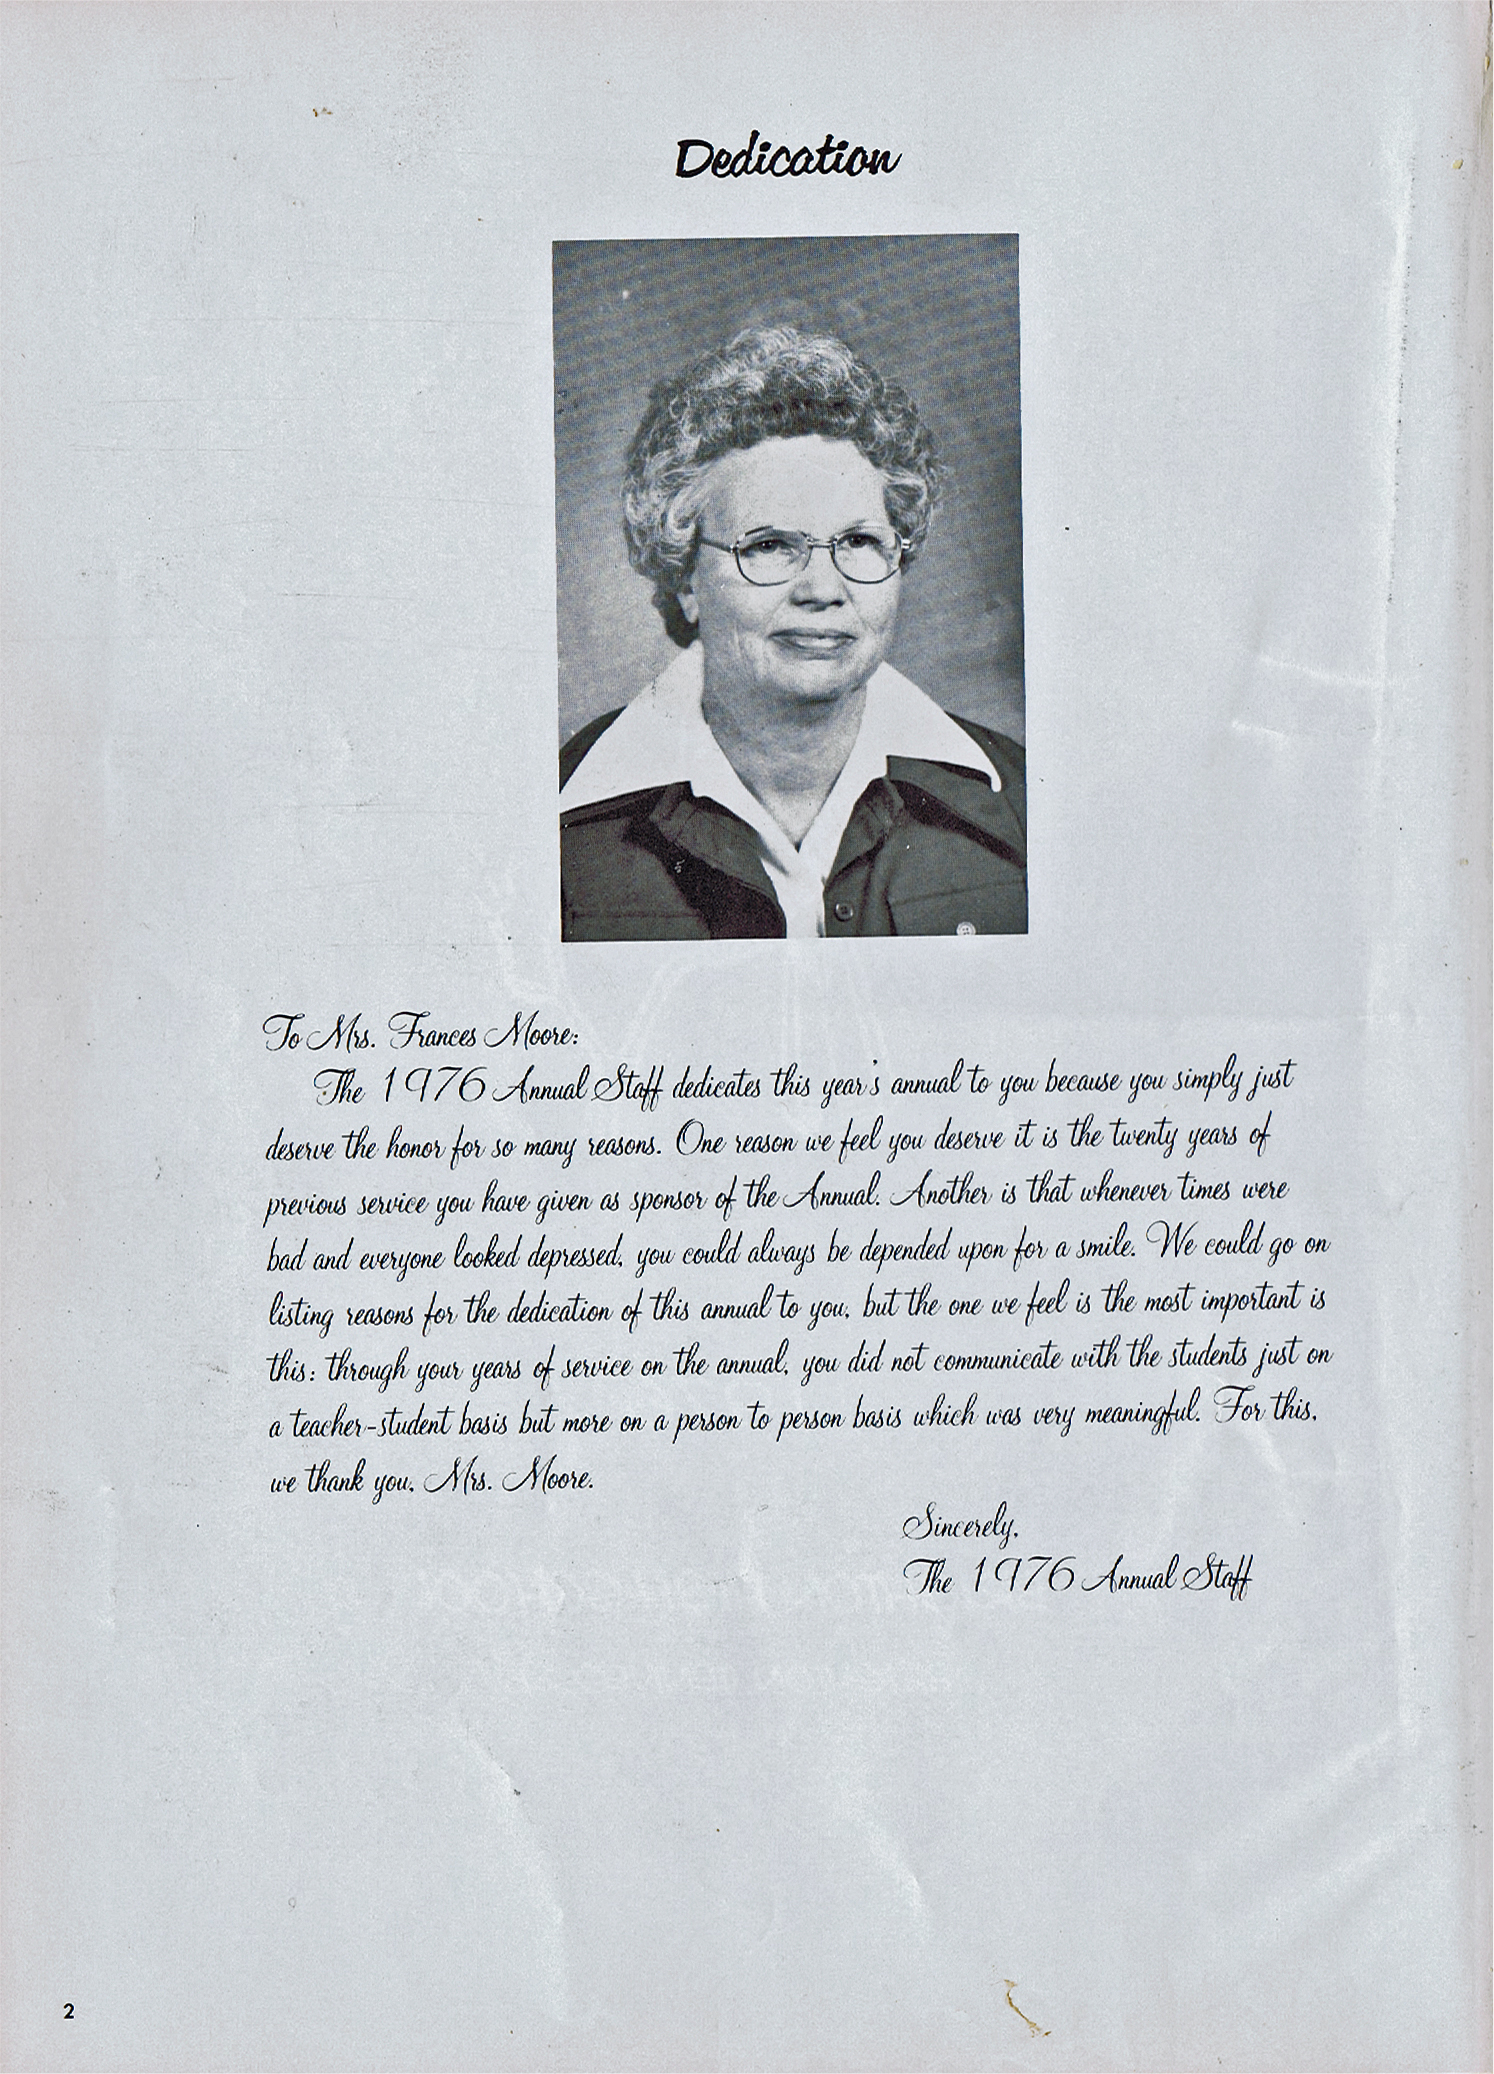 Dedication
To Mrs. Frances Moore:
The 1976 Annual Staff dedicates this year's annual to you because you simply just
deserve the honor for so many reasons. One reason we feel you deserve it is the twenty years of
previous service you have given as sponsor of the Annual. Another is that whenever times were
bad and everyone looked depressed, you could always be depended upon for a smile. We could go on
listing reasons for the dedication of this annual to you, but the one we feel is the most important is
this: through your years of service on the annual, you did not communicate with the students just on
a teacher-student basis but more on a person to person basis which was very meaningful. For this,
we thank you, Mrs. Moore.
Sincerely,
The 1976 Annual Staff
2